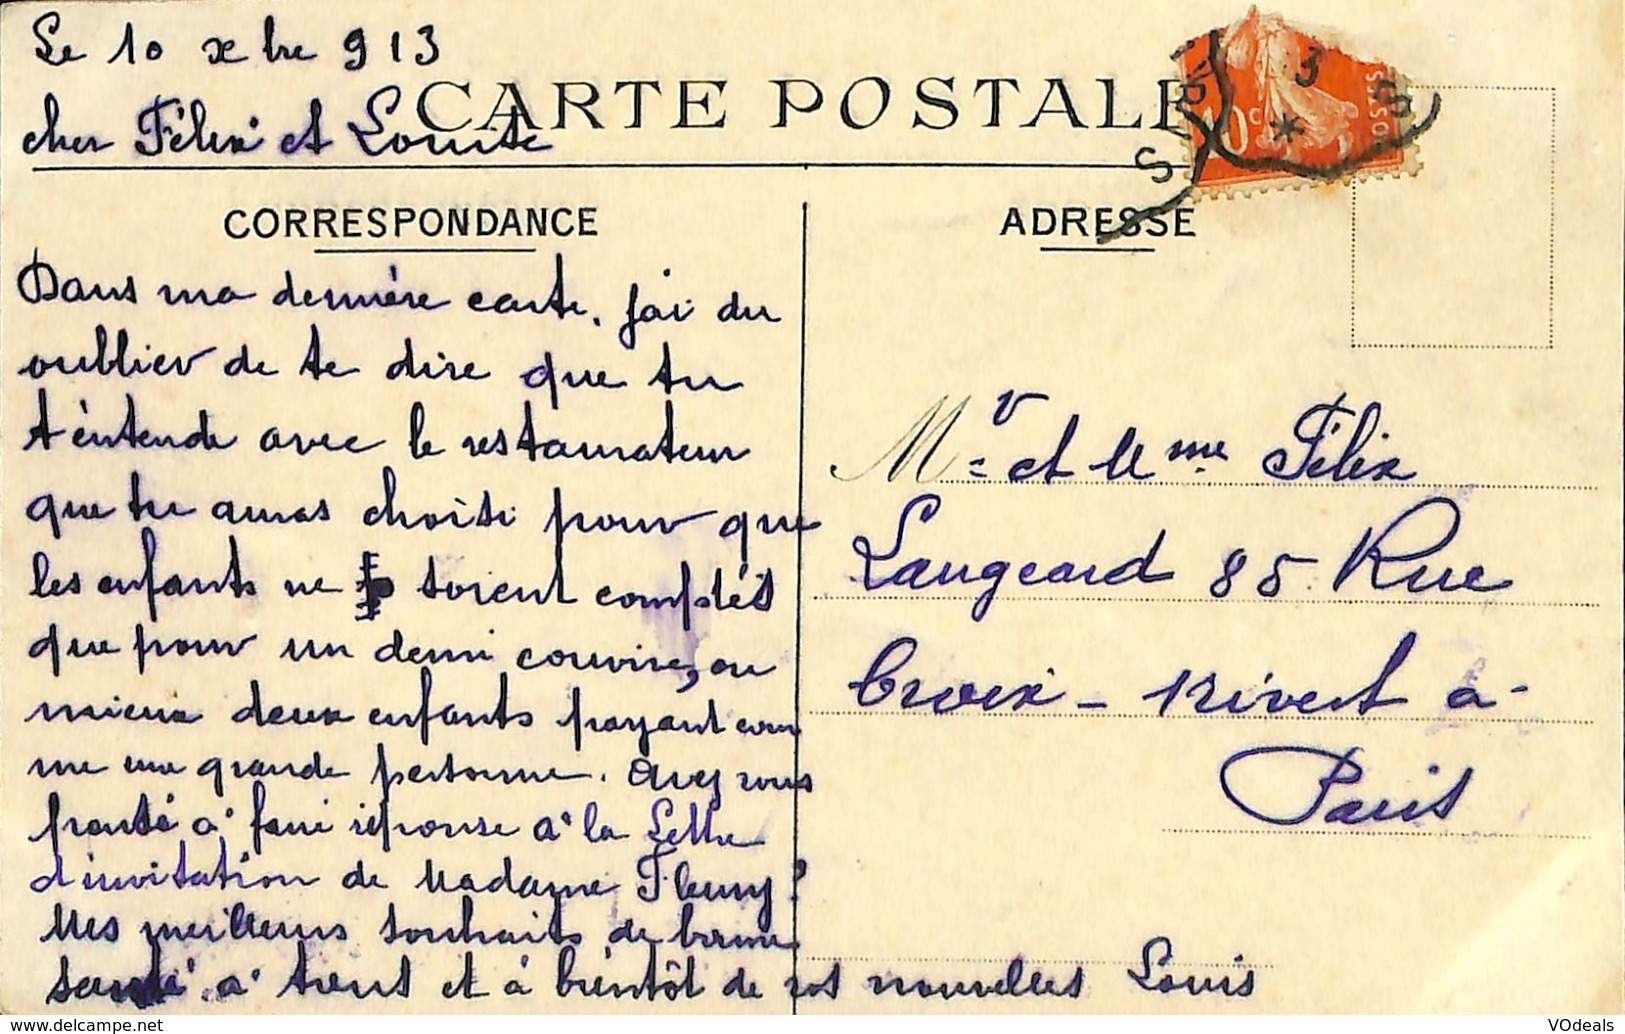 Le 10 xbre 913
CARTE POSTALE
cher Félix et Louise
CORRESPONDANCE
Dans ma dernière carte. j'ai du
oublier de te dire que tu
t'entende avec le restaurateur
que tu auras choisi pour que
les enfants ne soient comptés
que pour un demi couvire, ou
mieux deux enfants payant com
me une grande personne. Avez vous
pensé à faire réponse à la lettre
d'invitation de Madame Fleury?
Mes meilleurs souhaits de bonne
santé à tous et à bientôt de vos nouvelles Louis
ADRESSE
10c
POSTES
Mr et Mme Félix
Laugeard 85 Rue
Croix-Nivert à-
Paris
VOdeals
www.delcampe.net